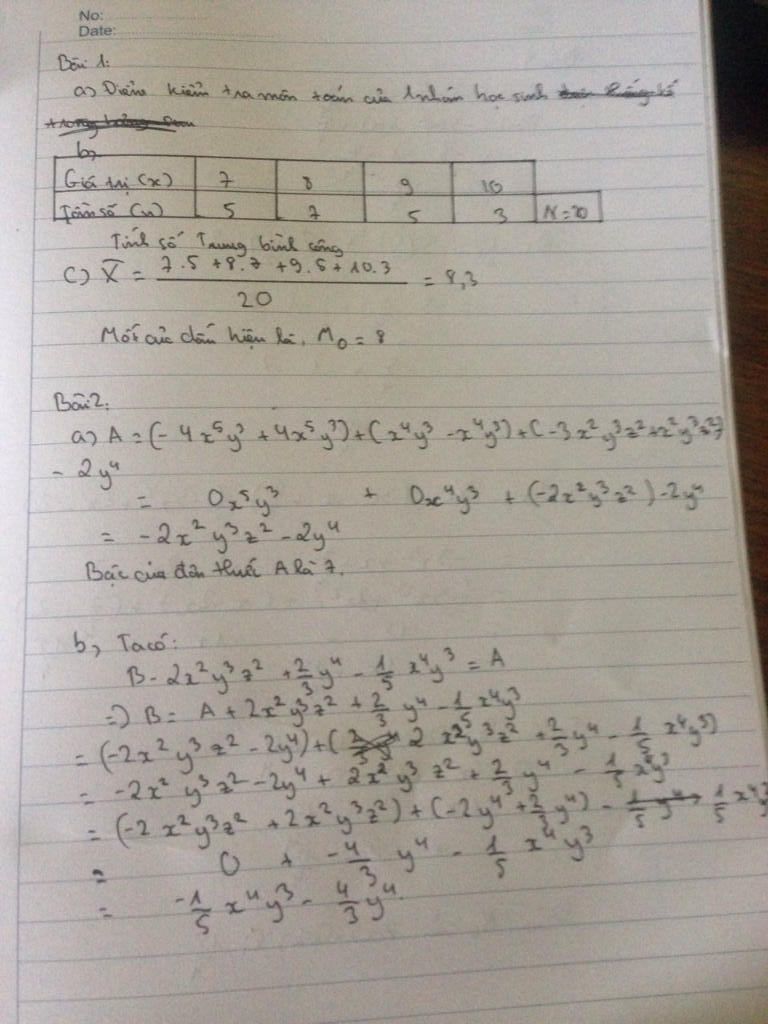 No:
Date:
Bài 1:
a) Điểm kiểm tra môn toán của 1 nhóm học sinh
b,
Giá trị (x) 7 8 9 10
Tần số (n) 5 7 5 3 N=20
Tính số Trung bình cộng
c) X̄ = (7.5 + 8.7 + 9.5 + 10.3)/20 = 8,3
Mốt của dấu hiệu là, M₀ = 8
Bài 2:
a) A = (- 4x⁵y³ + 4x⁵y³) + (x⁴y³ - x⁴y³) + (-3x²y³z² + x²y³z²)
- 2y⁴
= 0x⁵y³ + 0x⁴y³ + (-2x²y³z²) - 2y⁴
= -2x²y³z² - 2y⁴
Bậc của đơn thức A là 7.
b, Ta có:
B - 2x²y³z² + 2/3 y⁴ - 1/5 x⁴y³ = A
=) B = A + 2x²y³z² + 2/3 y⁴ - 1/5 x⁴y³
= (-2x²y³z² - 2y⁴) + ( 2 x²y³z² + 2/3 y⁴ - 1/5 x⁴y³)
= -2x² y³z² - 2y⁴ + 2x²y³ z² + 2/3 y⁴ - 1/5 x⁴y³
= (-2x²y³z² + 2x²y³z²) + (-2y⁴ + 2/3 y⁴) - 1/5 x⁴y³
= 0 + -4/3 y⁴ - 1/5 x⁴y³
= -1/5 x⁴y³ - 4/3 y⁴.